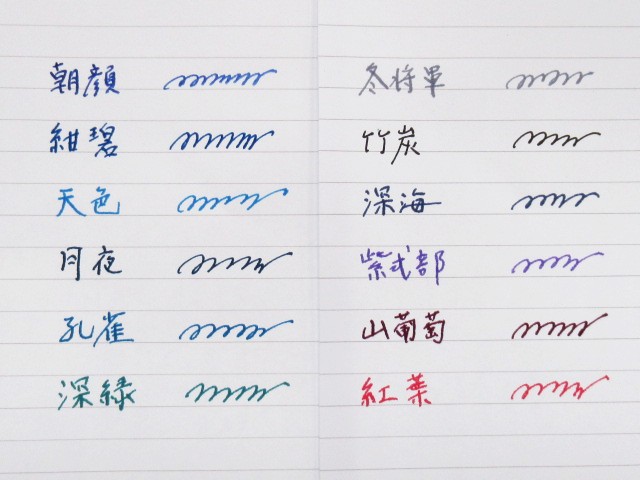 朝顔
紺碧
天色
月夜
孔雀
深緑
冬将軍
竹炭
深海
紫式部
山葡萄
紅葉